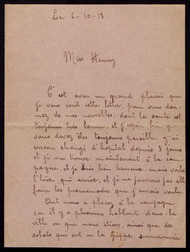 Le 6-10-18.
Miss Henry
C'est avec un grand plaisir que
je vous écrit cette lettre, pour vous don-
ner de mes nouvelles, dont la santé est
toujours très bonne, et j'espère que
vous devez être toujours pareille. J'ai
encore changé d'hôpital depuis 8 jours
et je me trouve maintenant à la cam-
pagne, et je suis bien heureux, mais voilà
l'hiver qui arrive, et je ne pourrais pas allé
faire les promenades que j'aurais voulu
Ont nous a placés à la campagne
car il y a plusieurs habitants dans la
ville où que nous étions, ainsi que de
soldats qui ont eu la Grippe,